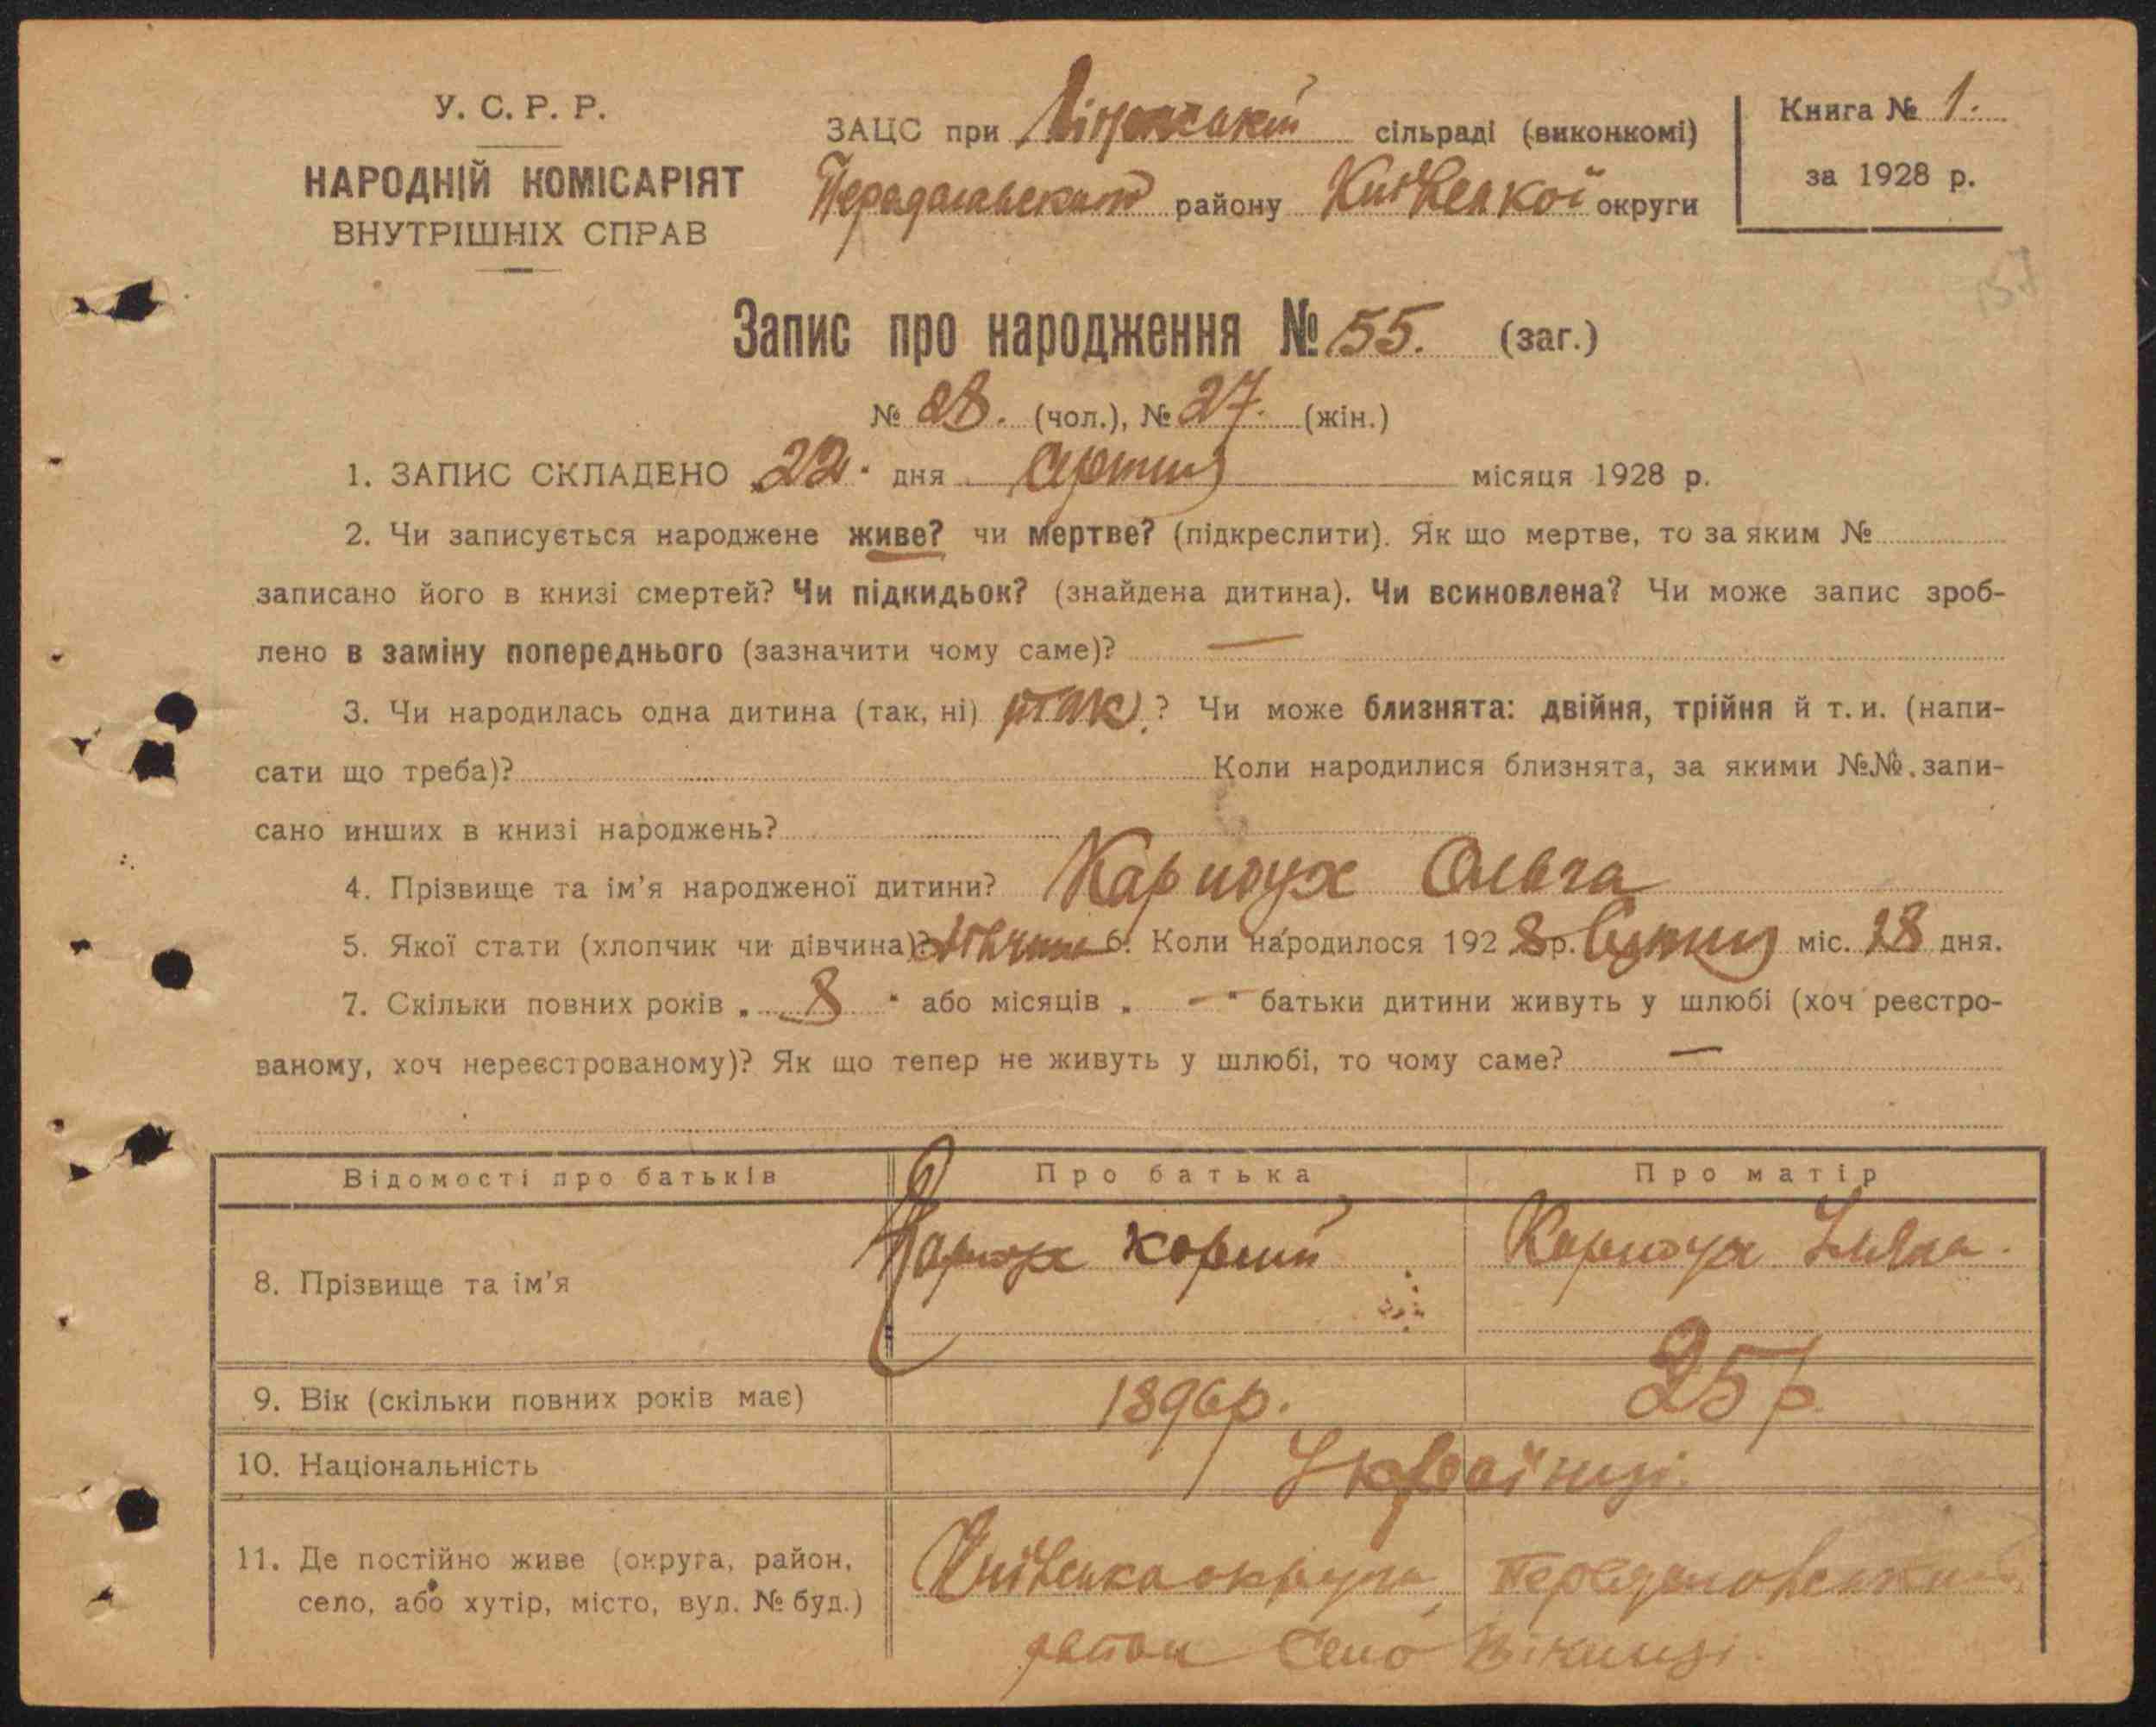 У. С. Р. Р.
НАРОДНІЙ КОМІСАРІЯТ
ВНУТРІШНІХ СПРАВ
ЗАЦС при сільраді (виконкомі)
району Київської округи
Книга № 1.
за 1928 р.
157
Запис про народження № 55. (заг.)
№ 28. (чол.), № 27. (жін.)
1. ЗАПИС СКЛАДЕНО 22. дня місяця 1928 р.
2. Чи записується народжене живе? чи мертве? (підкреслити). Як що мертве, то за яким №
записано його в книзі смертей? Чи підкидьок? (знайдена дитина). Чи всиновлена? Чи може запис зроб-
лено в заміну попереднього (зазначити чому саме)? —
3. Чи народилась одна дитина (так, ні) так? Чи може близнята: двійня, трійня й т. и. (напи-
сати що треба)? Коли народилися близнята, за якими №№ запи-
сано инших в книзі народжень?
4. Прізвище та ім'я народженої дитини? Карпюух Ольга
5. Якої стати (хлопчик чи дівчина)? дівчина 6. Коли народилося 1928 р. міс. 18 дня.
7. Скільки повних років „ 8 " або місяців „ — " батьки дитини живуть у шлюбі (хоч реєстро-
ваному, хоч нереєстрованому)? Як що тепер не живуть у шлюбі, то чому саме? —
Відомості про батьків Про батька Про матір
8. Прізвище та ім'я Корній
9. Вік (скільки повних років має) 1896р. 25 р.
10. Національність Українці.
11. Де постійно живе (округа, район, Київська округа,
село, або хутір, місто, вул. № буд.) район село